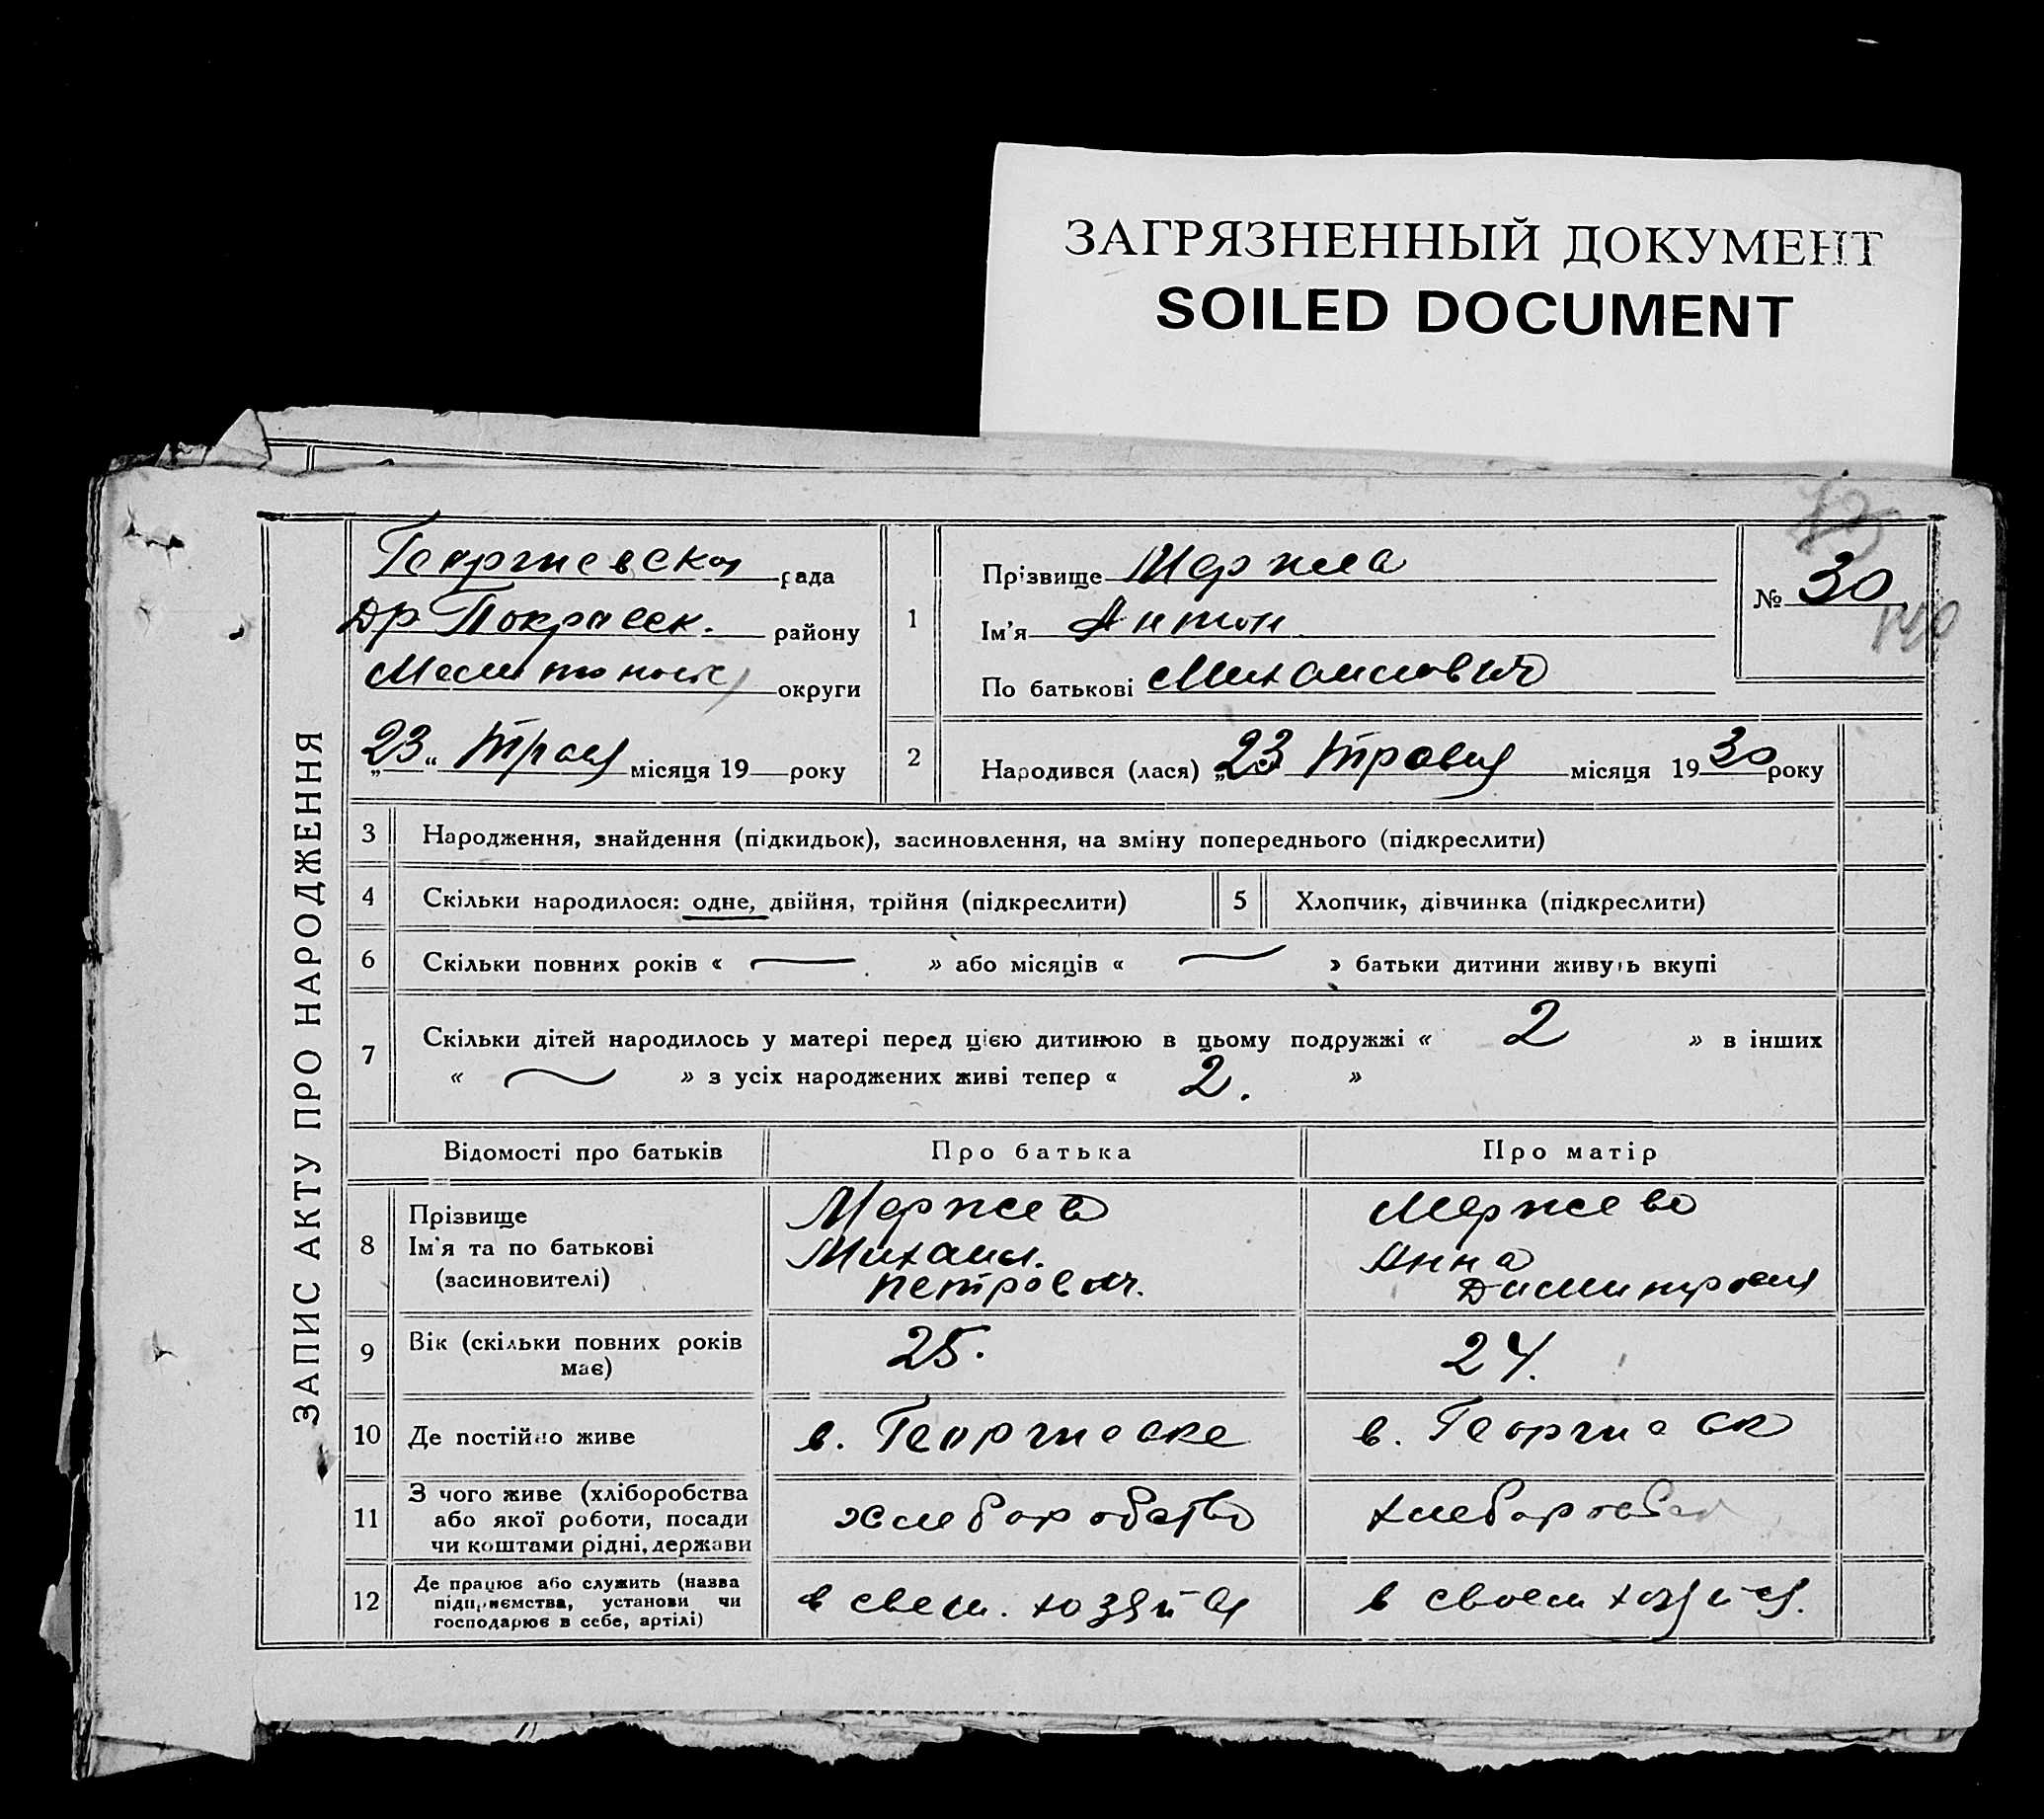 ЗАГРЯЗНЕННЫЙ ДОКУМЕНТ
SOILED DOCUMENT
ЗАПИС АКТУ ПРО НАРОДЖЕННЯ
Георгиевска рада
району
округи
„23“ Травня місяця 19 року
1
Прізвище
Ім'я Антон
По батькові Михаилович
№ 30
2
Народився (лася) „23 Травня місяця 1930 року
3 Народження, знайдення (підкидьок), засиновлення, на зміну попереднього (підкреслити)
4 Скільки народилося: одне, двійня, трійня (підкреслити)
5 Хлопчик, дівчинка (підкреслити)
6 Скільки повних років « — » або місяців « — » батьки дитини живуть вкупі
7 Скільки дітей народилось у матері перед цією дитиною в цьому подружжі « 2 » в інших
« — » з усіх народжених живі тепер « 2. »
Відомості про батьків Про батька Про матір
8 Прізвище
Ім'я та по батькові
(засиновителі)
Михаил.
Петрович.
Анна
9 Вік (скільки повних років
має)
25. 24.
10 Де постійно живе в. в.
11 З чого живе (хліборобства
або якої роботи, посади
чи коштами рідні, держави
хлеборобство
12 Де працює або служить (назва
підприємства, установи чи
господарює в себе, артілі)
в своем